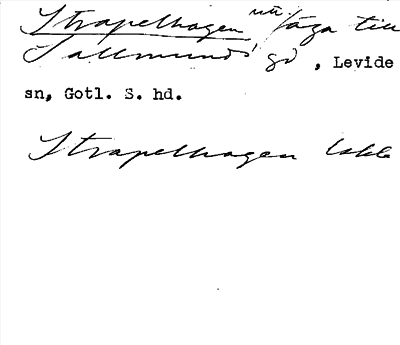 Strapelhagen nu/ läga till
Sallmunds gd, Levide
sn, Gotl. S. hd.
Strapelhagen